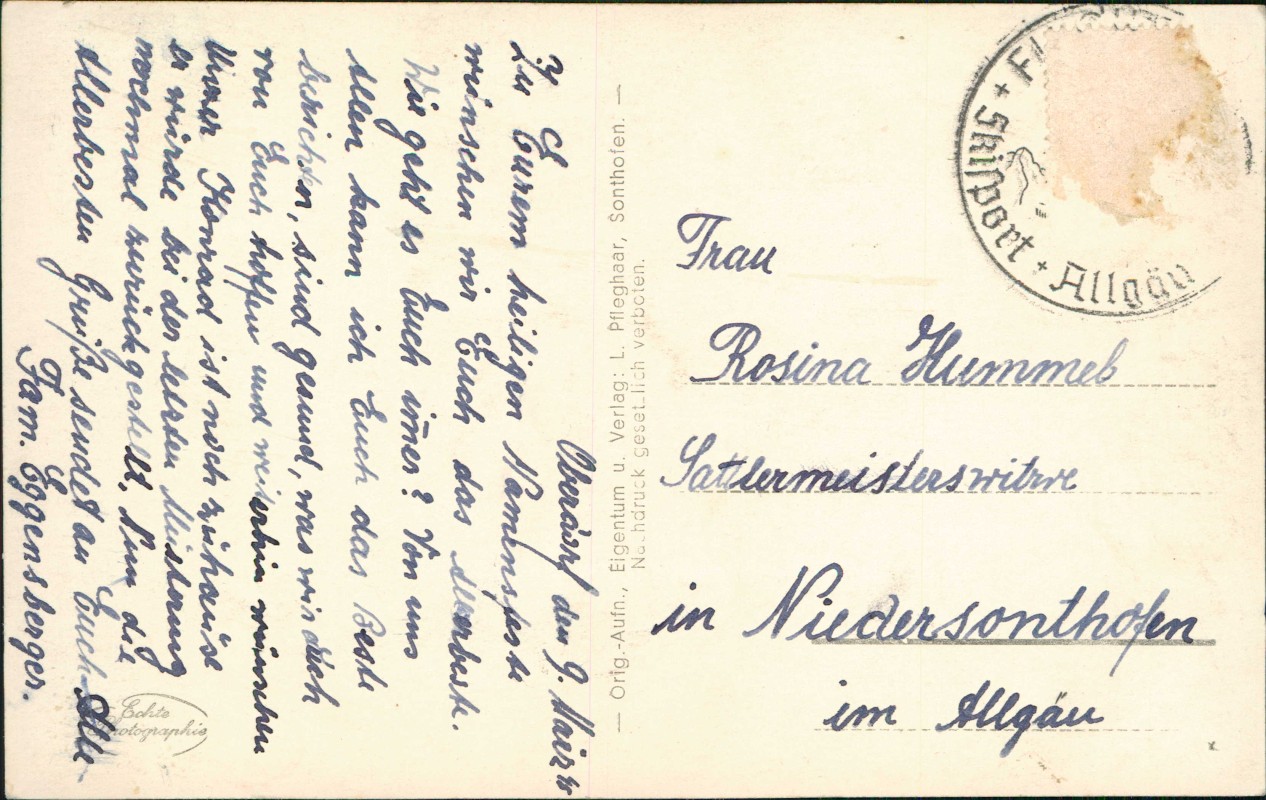 den 9. März
Zu Eurem heiligen Namensfeste
wünschen wir Euch das Allerbeste.
Wie geht es Euch imer? Von uns
Allen kann ich Euch das Beste
berichten, sind gesund, was wir auch
von Euch hoffen und weiterhin wünschen
Unser Konrad ist noch zuhause
er würde bei der letzten Musterung
nochmal zurückgestellt. Nun die
Allerbesten Grüße sendet an Euch Alle
Fam. Eggensberger.
Echte
Photographie
— Orig.-Aufn., Eigentum u. Verlag: L. Pfleghaar, Sonthofen. —
Nachdruck gesetzlich verboten.
Skisport + Allgäu
Frau
Rosina Hummel
Sattlermeisterswitwe
in Niedersonthofen
im Allgäu